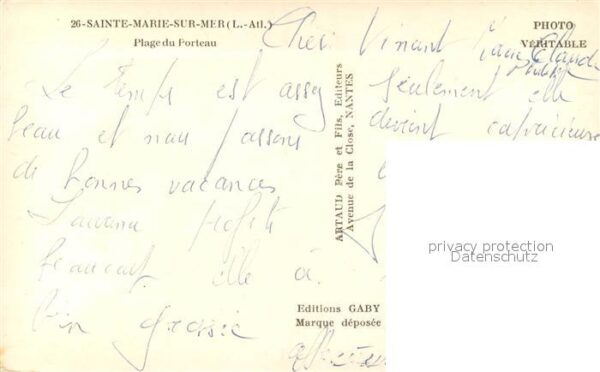 26-SAINTE-MARIE-SUR-MER (L.-Atl.)
Plage du Porteau
PHOTO
VÉRITABLE
Cher Vincent Jean Claude
Le temps est assez
beau et nous passons
de bonnes vacances
profite
beaucoup elle a
bien grossie
seulement elle
devient capricieuse
ARTAUD Père et Fils, Editeurs
Avenue de la Close, NANTES
Editions GABY
Marque déposée
privacy protection
Datenschutz